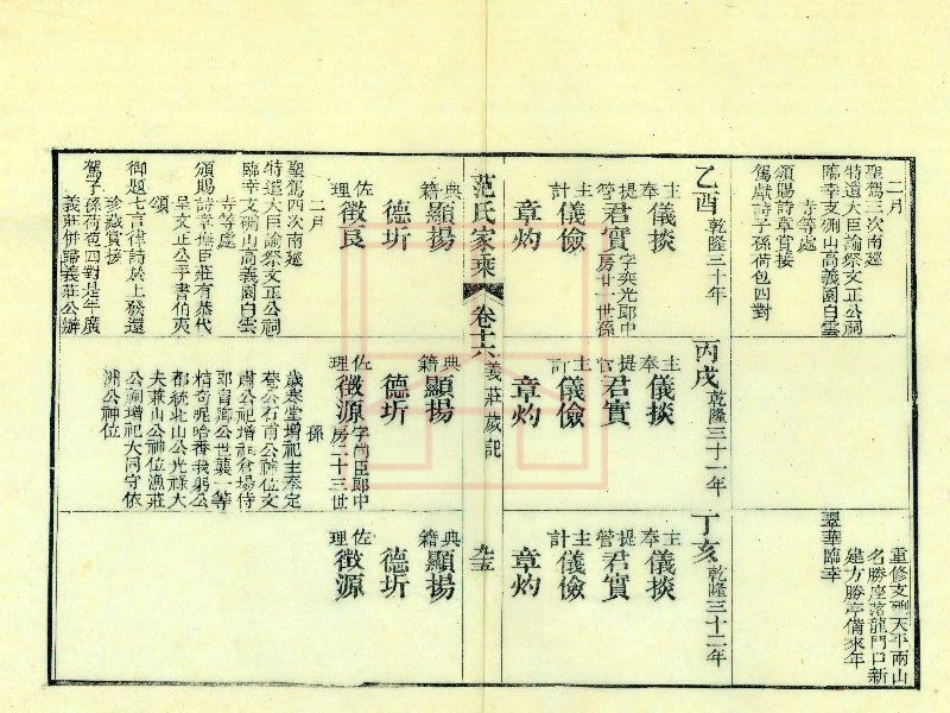 二月
聖駕三次南廵
特遣大臣諭祭文正公祠
臨幸支硎山高義園白雲
寺等處
頒賜詩章賞接
駕獻詩子孫荷包四對
乙酉 乾隆三十年
主奉 儀掞
提管 君實 字奕光郎中房廿一世孫
主計 儀儉
章灼
典籍 顯揚
德圻
佐理 徵良
二月
聖駕四次南廵
特遣大臣諭祭文正公祠
臨幸支硎山高義園白雲
寺等處
頒賜詩章
御題七言律詩於上發還
珍藏賞接
駕子孫荷包四對是年廣
義莊併歸義莊公辦
丙戌 乾隆三十一年
主奉 儀掞
提管 君實
主計 儀儉
章灼
典籍 顯揚
德圻
佐理 徵源 字尚臣郎中房二十三世
孫
歲寒堂增祀主奉定
公石甫公神位文
肅公祀增
都統北山公光祿大
夫兼山公神位漁莊
公祠增祀大同守依
洲公神位
重修支硎天平兩山
名勝座落龍門口新
建方勝亭備來年
翠華臨幸
丁亥 乾隆三十二年
主奉 儀掞
提管 君實
主計 儀儉
章灼
典籍 顯揚
德圻
佐理 徵源
范氏家乘 卷十六 義莊歲記